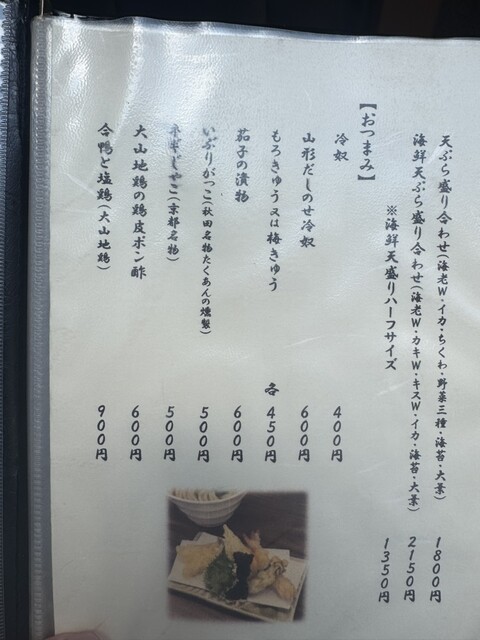 天ぷら盛り合わせ(海老W・イカ・ちくわ・野菜三種・海苔・大葉) 1800円
海鮮天ぷら盛り合わせ(海老W・カキW・キスW・イカ・海苔・大葉) 2150円
※海鮮天盛りハーフサイズ 1350円
【おつまみ】
冷奴 400円
山形だしのせ冷奴 600円
もろきゅう又は梅きゅう 各450円
茄子の漬物 600円
いぶりがっこ(秋田名物たくあんの燻製) 500円
じゃこ(京都名物) 500円
大山地鶏の鶏皮ポン酢 600円
合鴨と塩鶏(大山地鶏) 900円